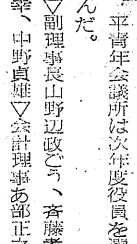 平青年会議所は次年度役員を選
んだ。
▽副理事長山野辺政ごう、斉藤
幸、中野貞雄▽会計理事あ部正